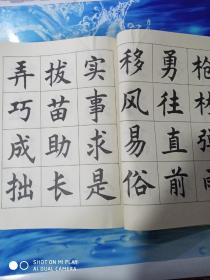 枪林弹雨
勇往直前
移风易俗
实事求是
拔苗助长
弄巧成拙
SHOT ON MI PLAY
AI DUAL CAMERA